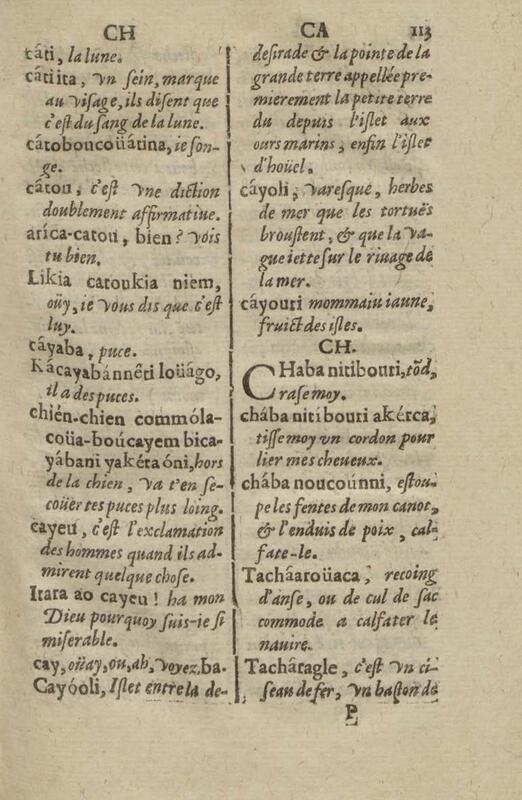 CH
CA 113
cáti, la lune.
cátiita, vn sein, marque
au visage, ils disent que
c'est du sang de la lune.
cátoboucoüátina, ie son-
ge.
cátou, c'est vne diction
doublement affirmatiue.
aríca-catou, bien? vois
tu bien.
Likia catoukia niem,
oüy, ie vous dis que c'est
luy.
cáyaba, puce.
Kácayabánnêti loüágo,
il a des puces.
chién-chien commóla-
coüa-boúcayem bica-
yábani yakéta óni, hors
de la chien, va t'en se-
coüer tes puces plus loing.
cayeu, c'est l'exclamation
des hommes quand ils ad-
mirent quelque chose.
Itara ao cayeu! ha mon
Dieu pourquoy suis-ie si
miserable.
cay, oüay, ou, ah, voyez, ba.
Cayóoli, Islet entre la de-
desirade & la pointe de la
grande terre appellée pre-
mierement la petite terre
du depuis l'islet aux
ours marins, enfin l'islet
d'hoüel.
cáyoli, varesque, herbes
de mer que les tortuës
broustent, & que la va-
gue iette sur le riuage de
la mer.
cáyouri mommaiu iaune,
fruict des isles.
CH.
CHaba nitibouri, tõd,
rase moy.
chába nitibouri akérca,
tisse moy vn cordon pour
lier mes cheueux.
chába noucoúnni, estou-
pe les fentes de mon canot,
& l'enduis de poix, cal-
fate-le.
Tacháaroüaca, recoing
d'anse, ou de cul de sac
commode a calfater le
nauire.
Tachâragle, c'est vn ci-
seau de fer, vn baston de
P